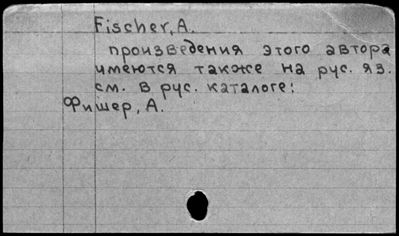 Fischer, A.
произведения этого автора
имеются также на рус. яз.
см. в рус. каталоге:
Фишер, А.